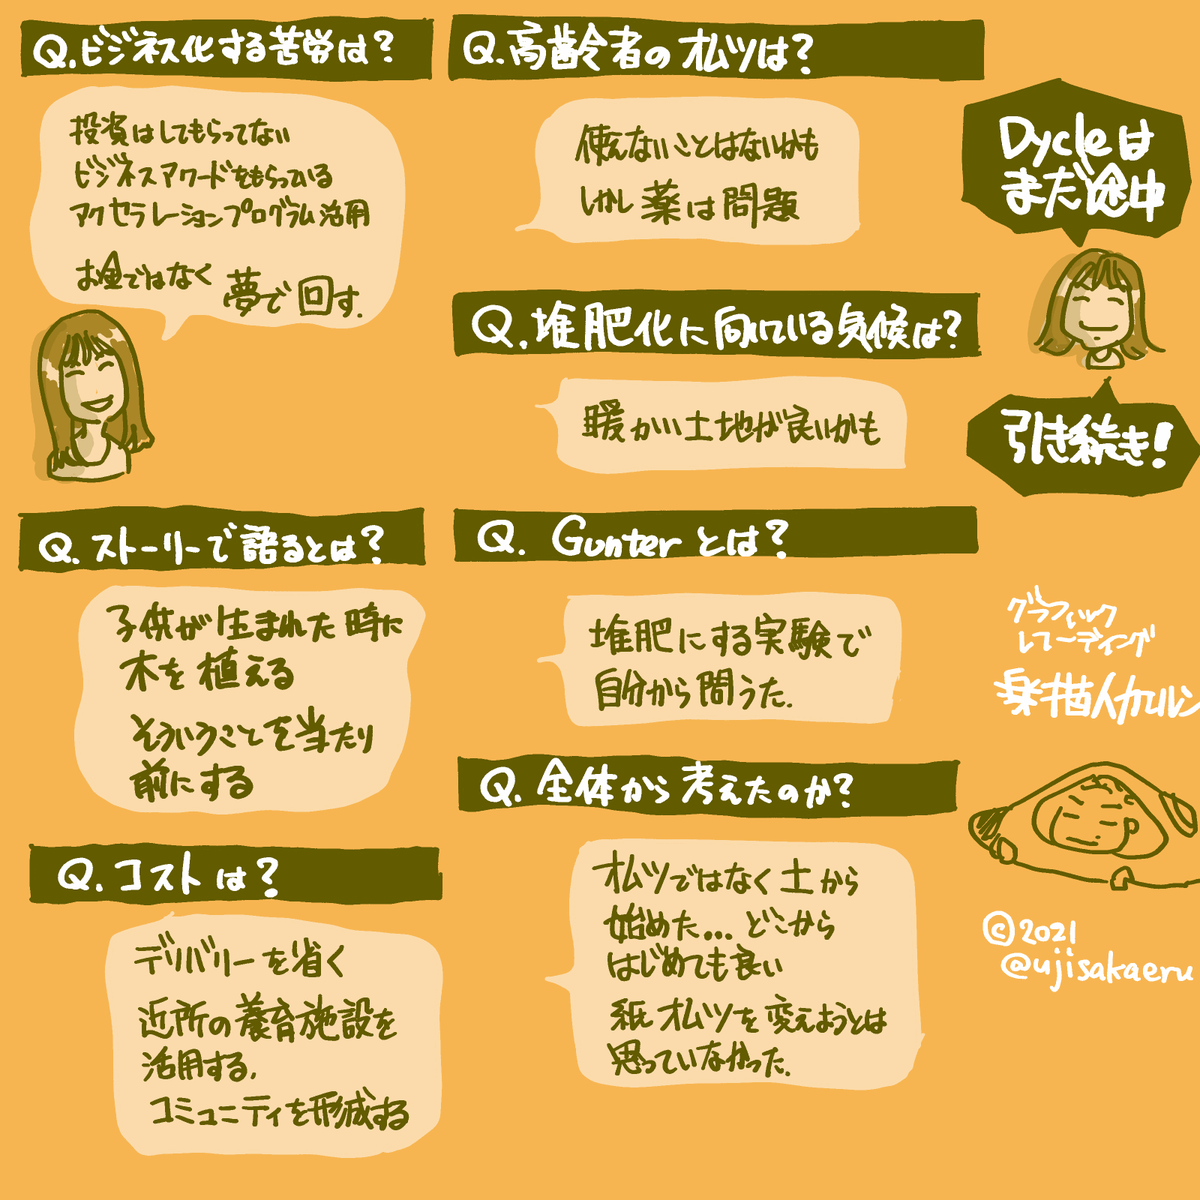 Q.ビジネス化する苦労は?
投資はしてもらってない
ビジネスアワードをもらっている
アクセラレーションプログラム活用
お金ではなく
夢で回す.
Q.ストーリーで語るとは?
子供が生まれた時に
木を植える
そういうことを当たり
前にする
Q.コストは?
デリバリーを省く
近所の養育施設を
活用する.
コミュニティを形成する
Q.高齢者のオムツは?
使えないことはないかも
しかし薬は問題
Q.堆肥化に向いている気候は?
暖かい土地が良いかも
Q. Gunterとは?
堆肥にする実験で
自分から問うた.
Q.全体から考えたのか?
オムツではなく土から
始めた...どこから
はじめても良い
紙オムツを変えようとは
思っていなかった.
Dycleは
まだ途中
引き続き!
グラフィック
レコーディング
楽描人カエルン
©2021
@ujisakaeru